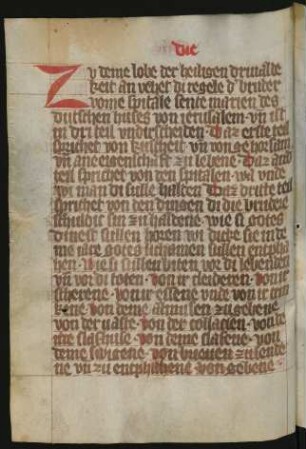 die
Zu deme lobe der heiligen drivalde
keit an vehet di regele d' bruder
vome spitale sente marien des
dutschen huses von jerusalem. vn ist
in dri teil vndirscheiden. Daz erste teil
sprichet von kuscheit. vn von gehorsam
vn ane eigenschaft zu lebene. Daz ander
teil sprichet von den spitalen. wa vnde
wi man di sulle halden. Daz dritte teil
sprichet von den dingen di die brudere
schuldic sin zu haldene. wie si gotes
dinest sullen horen. wi dicke sie in de
me iare gotes lichamen sullen entpha
hen. Wie si sullen biten vor di lebenden
vn vor di toten. Von ir cleideren. von ir
scherene. von ir essene vnde von ir trin
kene. von deme almusen zu gebene
von der vaste. von der collacien. von
deme slafene. von
deme swigene. von brieuen zu sende
ne vn zu entphahene. von gebene